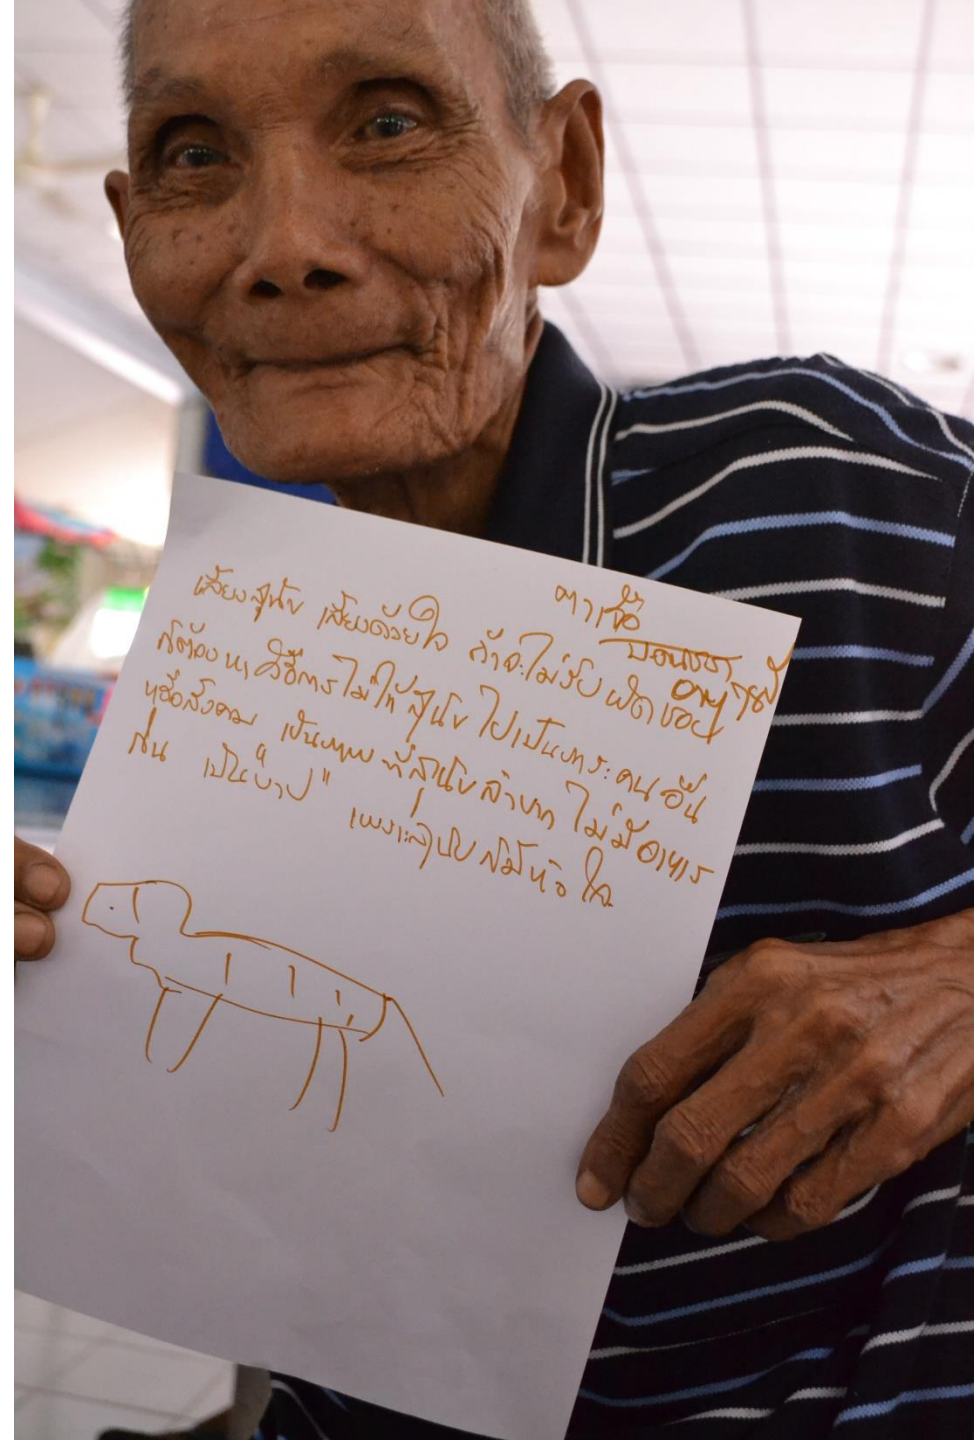 ตาชื้อ
เลี้ยงสุนัข เลี้ยงด้วยใจ ถ้าจะไม่รับผิดชอบ
ก็ต้องหาวิธีการไม่ให้สุนัขไปเป็นภาระคนอื่น
หรือสังคม เป็นเหตุที่สุนัขลำบาก ไม่มีอาหาร
กิน เป็น"บาป"
เพราะสุนัขก็มีหัวใจ